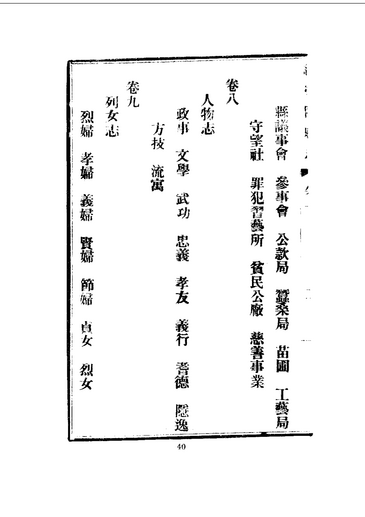 縣議事會 參事會 公款局 蠶桑局 苗圃 工藝局
守望社 罪犯習藝所 貧民公廠 慈善事業
卷八
人物志
政事 文學 武功 忠義 孝友 義行 耆德 隱逸
方技 流寓
卷九
列女志
烈婦 孝婦 義婦 賢婦 節婦 貞女 烈女
40